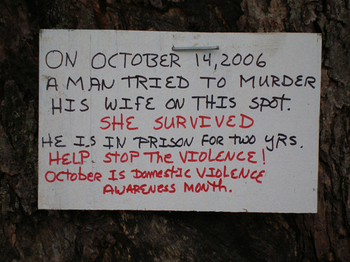 ON OCTOBER 14, 2006
A MAN TRIED TO MURDER
HIS WIFE ON THIS SPOT.
SHE SURVIVED
HE IS IN PRISON FOR TWO YRS.
HELP. STOP THE VIOLENCE!
OCTOBER IS DOMESTIC VIOLENCE
AWARENESS MONTH.